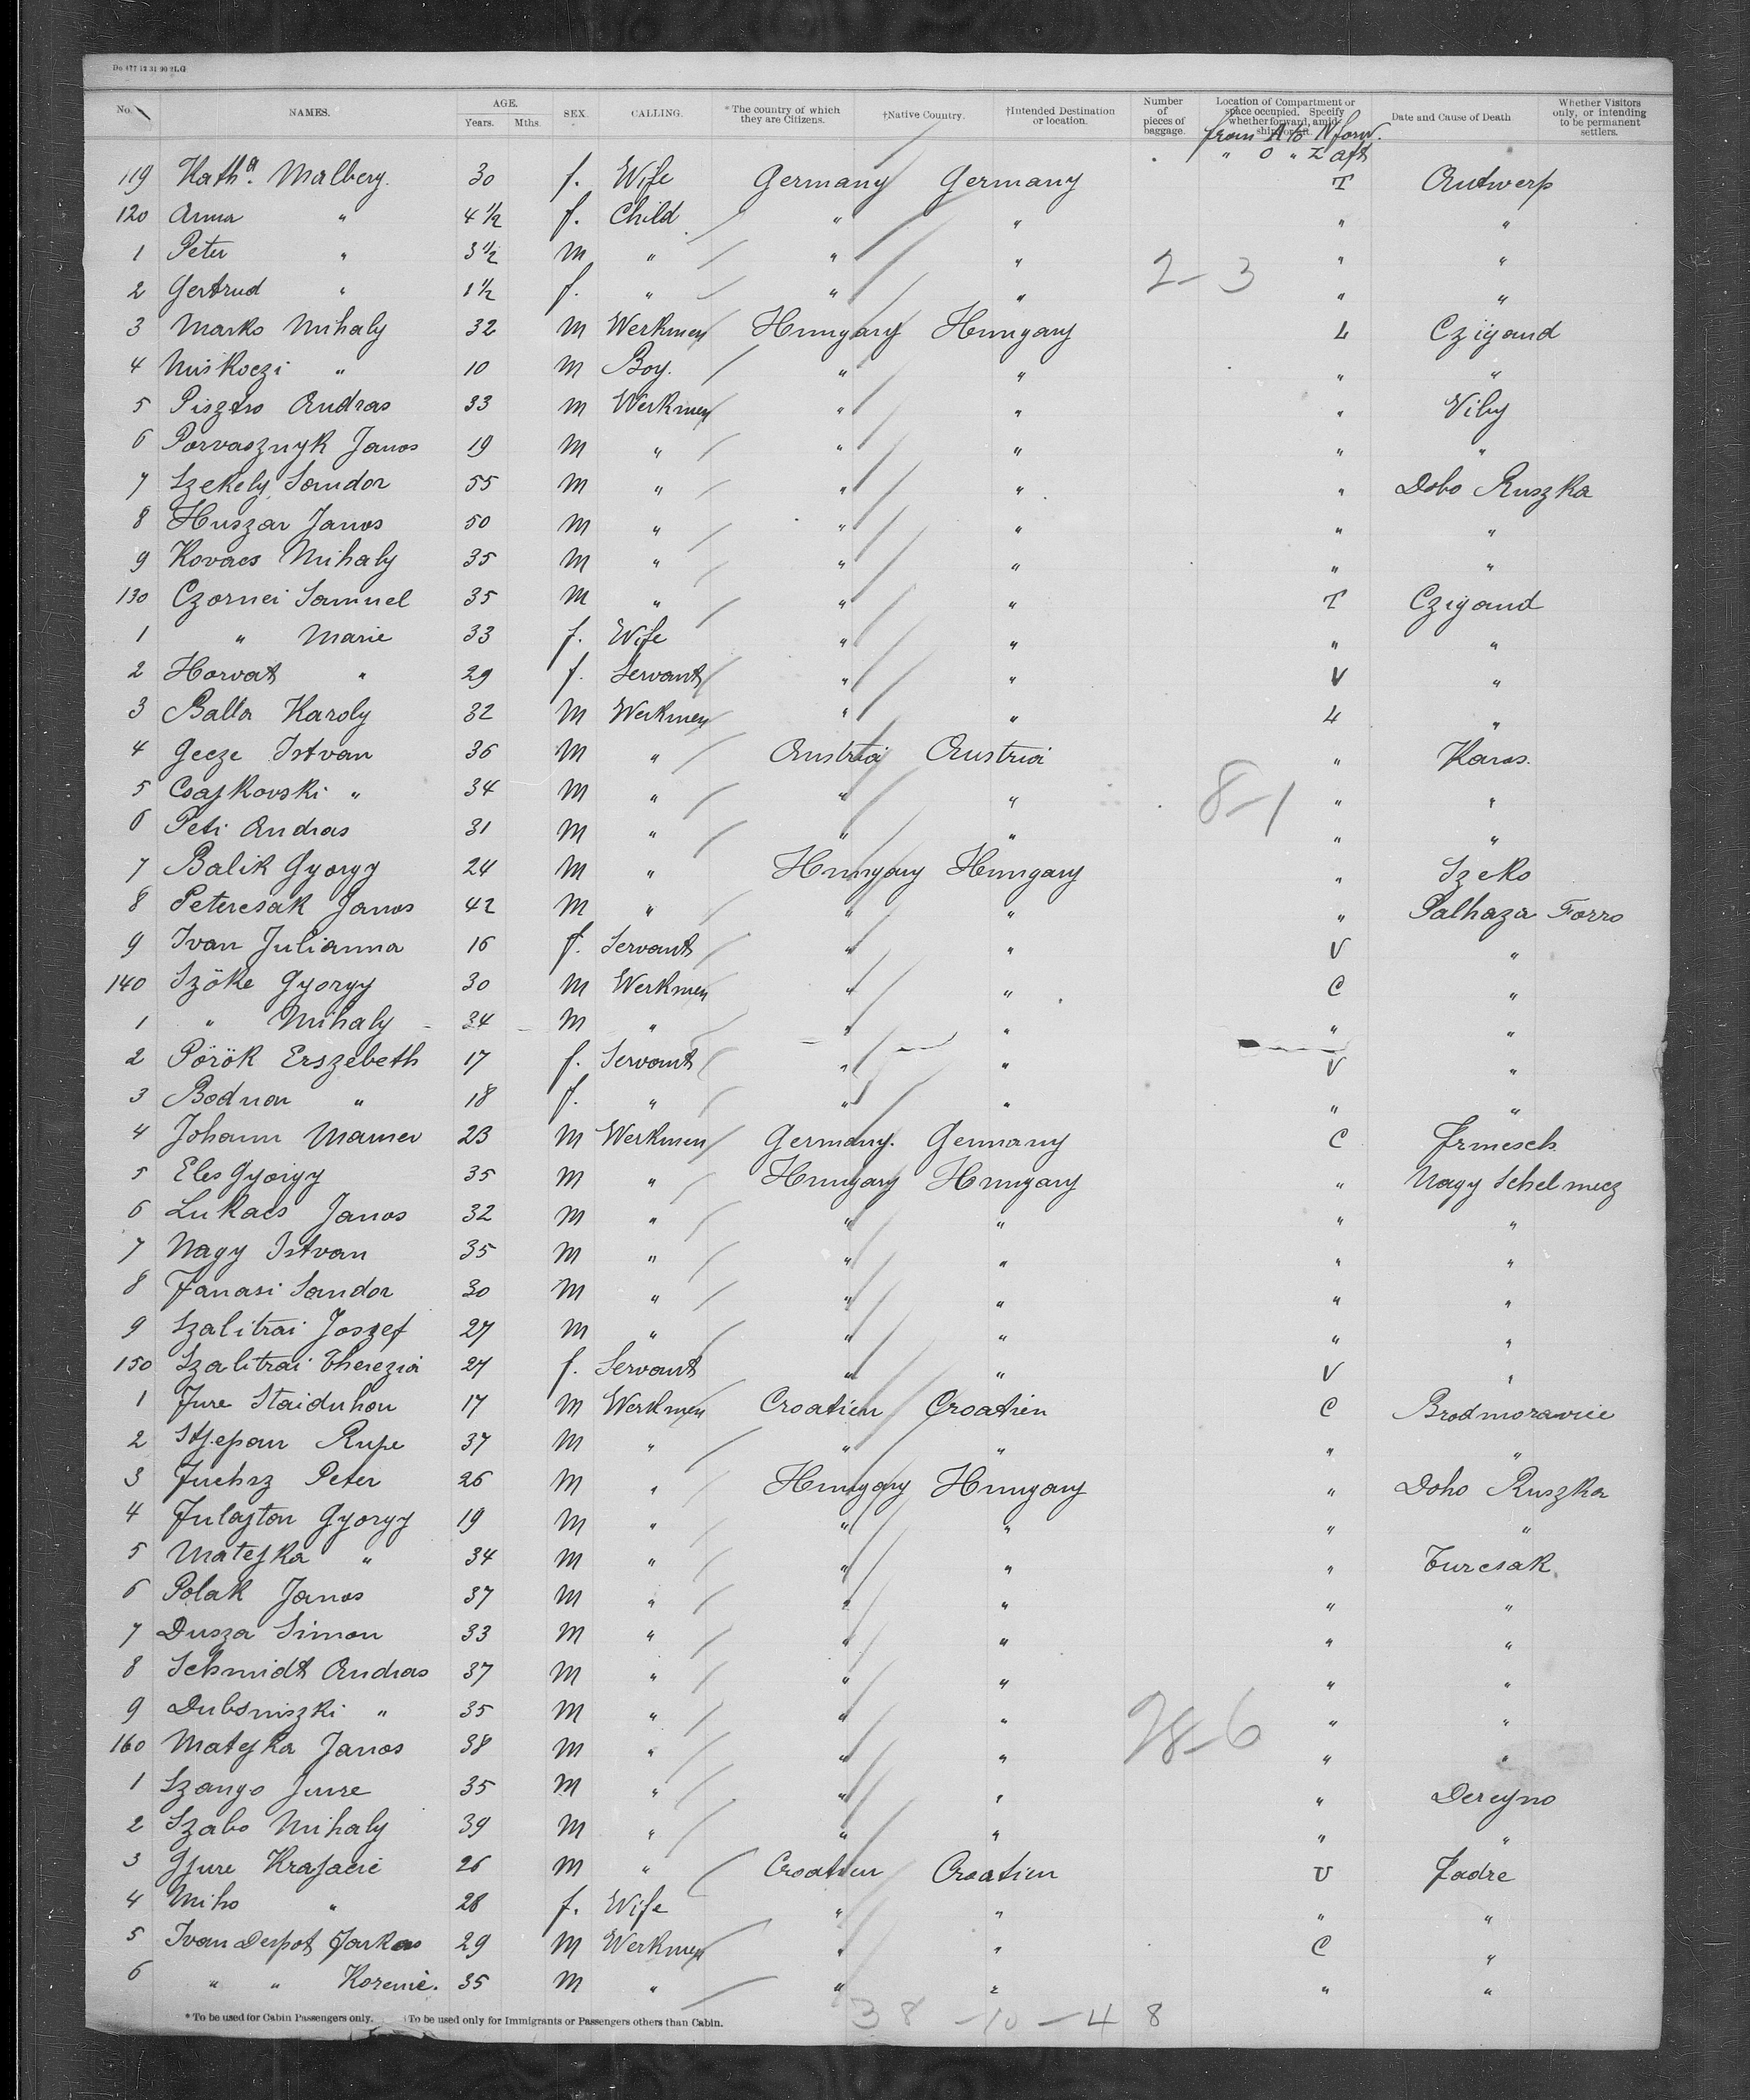 Do 477 12 31 99 2LG
No. NAMES. AGE. Years. Mths. SEX. CALLING. *The country of which they are Citizens. †Native Country. †Intended Destination or location. Number of pieces of baggage. Location of Compartment or space occupied. Specify whether forward, amidships or aft. Date and Cause of Death Whether Visitors only, or intending to be permanent settlers.
from A to N forw.
" O " Z aft
119 Katha. Malberg. 30 f. Wife Germany Germany T Antwerp
120 Anna " 4 1/2 f. Child " " " "
1 Peter " 3 1/2 m " " " " "
2 Gertrud " 1 1/2 f. " " " " "
2-3
3 Marko Mihaly 32 m Werkmen Hungary Hungary L Czigand
4 Miskoczi " 10 m Boy. " " " "
5 Pisztro Andras 33 m Werkmen " " " Vily
6 Porvasznyk Janos 19 m " " " " "
7 Szekely Sandor 55 m " " " " Dobo Ruszka
8 Huszar Janos 50 m " " " " "
9 Kovacs Mihaly 35 m " " " " "
130 Czornei Samuel 35 m " " " T Czigand
1 " Marie 33 f. Wife " " " "
2 Horvat " 29 f. Servant " " V "
3 Balla Karoly 32 m Werkmen " " L "
4 Gecze Istvan 36 m " Austria Austria " Karos.
5 Csajkovski " 34 m " " " " "
8-1
6 Peti Andras 31 m " " " " "
7 Balik Gyorgy 24 m " Hungary Hungary " Szeko
8 Petercsak Janos 42 m " " " " Palhaza Forro
9 Ivan Julianna 16 f. Servant " " V "
140 Szöke Gyorgy 30 m Werkmen " " C "
1 " Mihaly 34 m " " " " "
2 Pörök Erszebeth 17 f. Servant " " V "
3 Bodnar " 18 f. " " " " "
4 Johann Mamer 23 m Werkmen Germany. Germany C Irmesch
5 Eles Gyorgy 35 m " Hungary Hungary " Nagy Schelmecz
6 Lukacs Janos 32 m " " " " "
7 Nagy Istvan 35 m " " " " "
8 Fanasi Sandor 30 m " " " " "
9 Szalitrai Joszef 27 m " " " " "
150 Szalitrai Therezia 27 f. Servant " " V "
1 Jure Staiduhon 17 m Werkmen Croatien Croatien C Brodmoravice
2 Stjepan Rupe 37 m " " " " "
3 Fuchsz Peter 26 m " Hungary Hungary " Doho Ruszka
4 Fulajtan Gyorgy 19 m " " " " "
5 Matejka " 34 m " " " " Turcsak
6 Polak Janos 37 m " " " " "
7 Dusza Simon 33 m " " " " "
8 Schmidt Andras 37 m " " " " "
9 Dubsniszki " 35 m " " " " "
28-6
160 Matejka Janos 38 m " " " " "
1 Szango Jure 35 m " " " " Deregno
2 Szabo Mihaly 39 m " " " " "
3 Gjure Krajacic 26 m " Croatien Croatien U Jadre
4 Miho " 28 f. Wife " " " "
5 Ivan Despot 29 m Werkmen " " C "
6 " " Korenic. 35 m " " " " "
*To be used for Cabin Passengers only. †To be used only for Immigrants or Passengers others than Cabin.
38 -10 -4 8